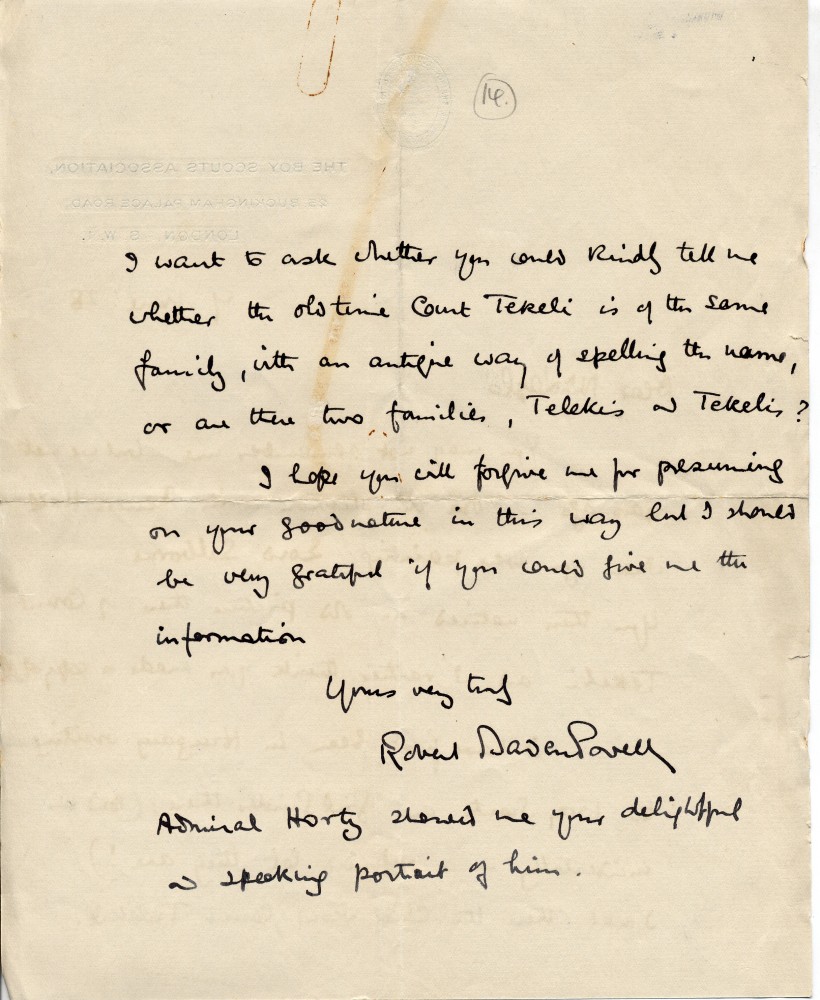 14.
THE BOY SCOUTS ASSOCIATION,
25 BUCKINGHAM PALACE ROAD,
LONDON S.W.1.
I want to ask whether you could kindly tell me
whether the old time Count Tekeli is of the same
family, with an antique way of spelling the name,
or are there two families, Telekis & Tekelis?
I hope you will forgive me for presuming
on your goodnature in this way but I should
be very grateful if you could give me the
information
Yours very truly
Robert Baden Powell
Admiral Horty showed me your delightful
& speaking portrait of him.